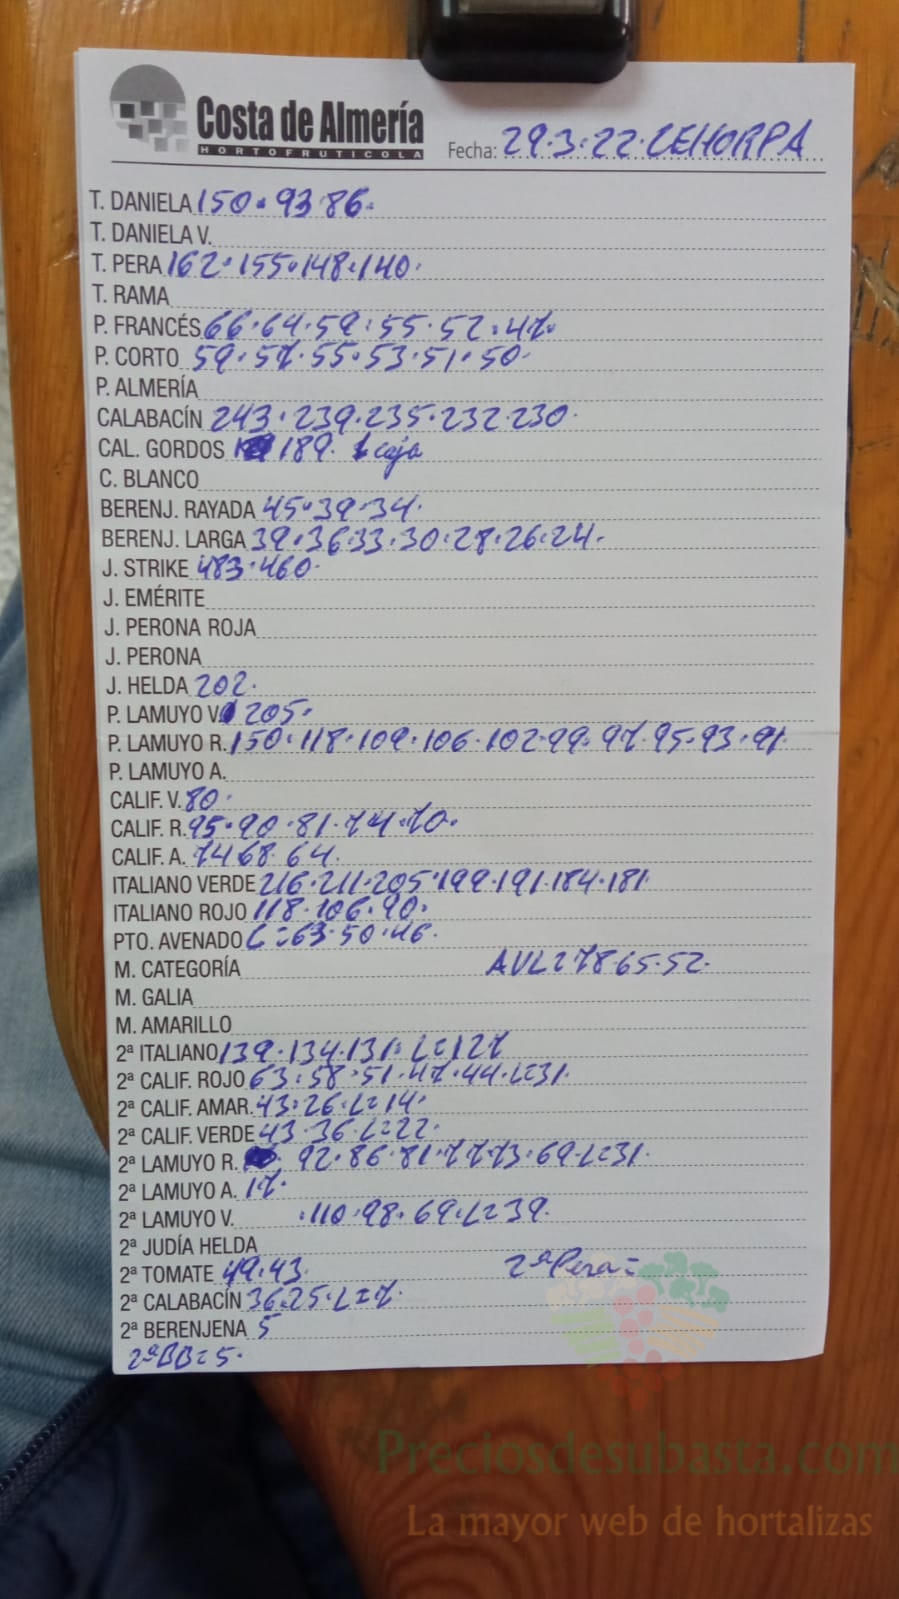 Costa de Almería
HORTOFRUTICOLA
Fecha: 29.3.22.CEHORPA
T. DANIELA 150.93 86.
T. DANIELA V.
T. PERA 162.155.148.140.
T. RAMA
P. FRANCÉS 66.64.59.55.52.47.
P. CORTO 59.57.55.53.51.50.
P. ALMERÍA
CALABACÍN 243.239.235.232.230.
CAL. GORDOS 189. 1 caja
C. BLANCO
BERENJ. RAYADA 45.39.34.
BERENJ. LARGA 39.36.33.30.28.26.24.
J. STRIKE 483.460.
J. EMÉRITE
J. PERONA ROJA
J. PERONA
J. HELDA 202.
P. LAMUYO V. 205.
P. LAMUYO R. 150.118.109.106.102.99.97.95.93.91.
P. LAMUYO A.
CALIF. V. 80.
CALIF. R. 95.90.81.74.70.
CALIF. A. 74 68.64.
ITALIANO VERDE 216.211.205.199.191.184.181.
ITALIANO ROJO 118.106.90.
PTO. AVENADO L=63.50.46.
M. CATEGORÍA AVL=78.65.52.
M. GALIA
M. AMARILLO
2ª ITALIANO 139.134.131. L=127
2ª CALIF. ROJO 63.58.51.47.44.L=31.
2ª CALIF. AMAR. 43.26.L=14.
2ª CALIF. VERDE 43.36.L=22.
2ª LAMUYO R. 92.86.81.77.73.69.L=31.
2ª LAMUYO A. 17.
2ª LAMUYO V. .110.98.69.L=39.
2ª JUDÍA HELDA
2ª TOMATE 49.43. 2ªPera=
2ª CALABACÍN 36.25.L=7.
2ª BERENJENA 5
2ªBB=5.
Preciosdesubasta.com
La mayor web de hortalizas